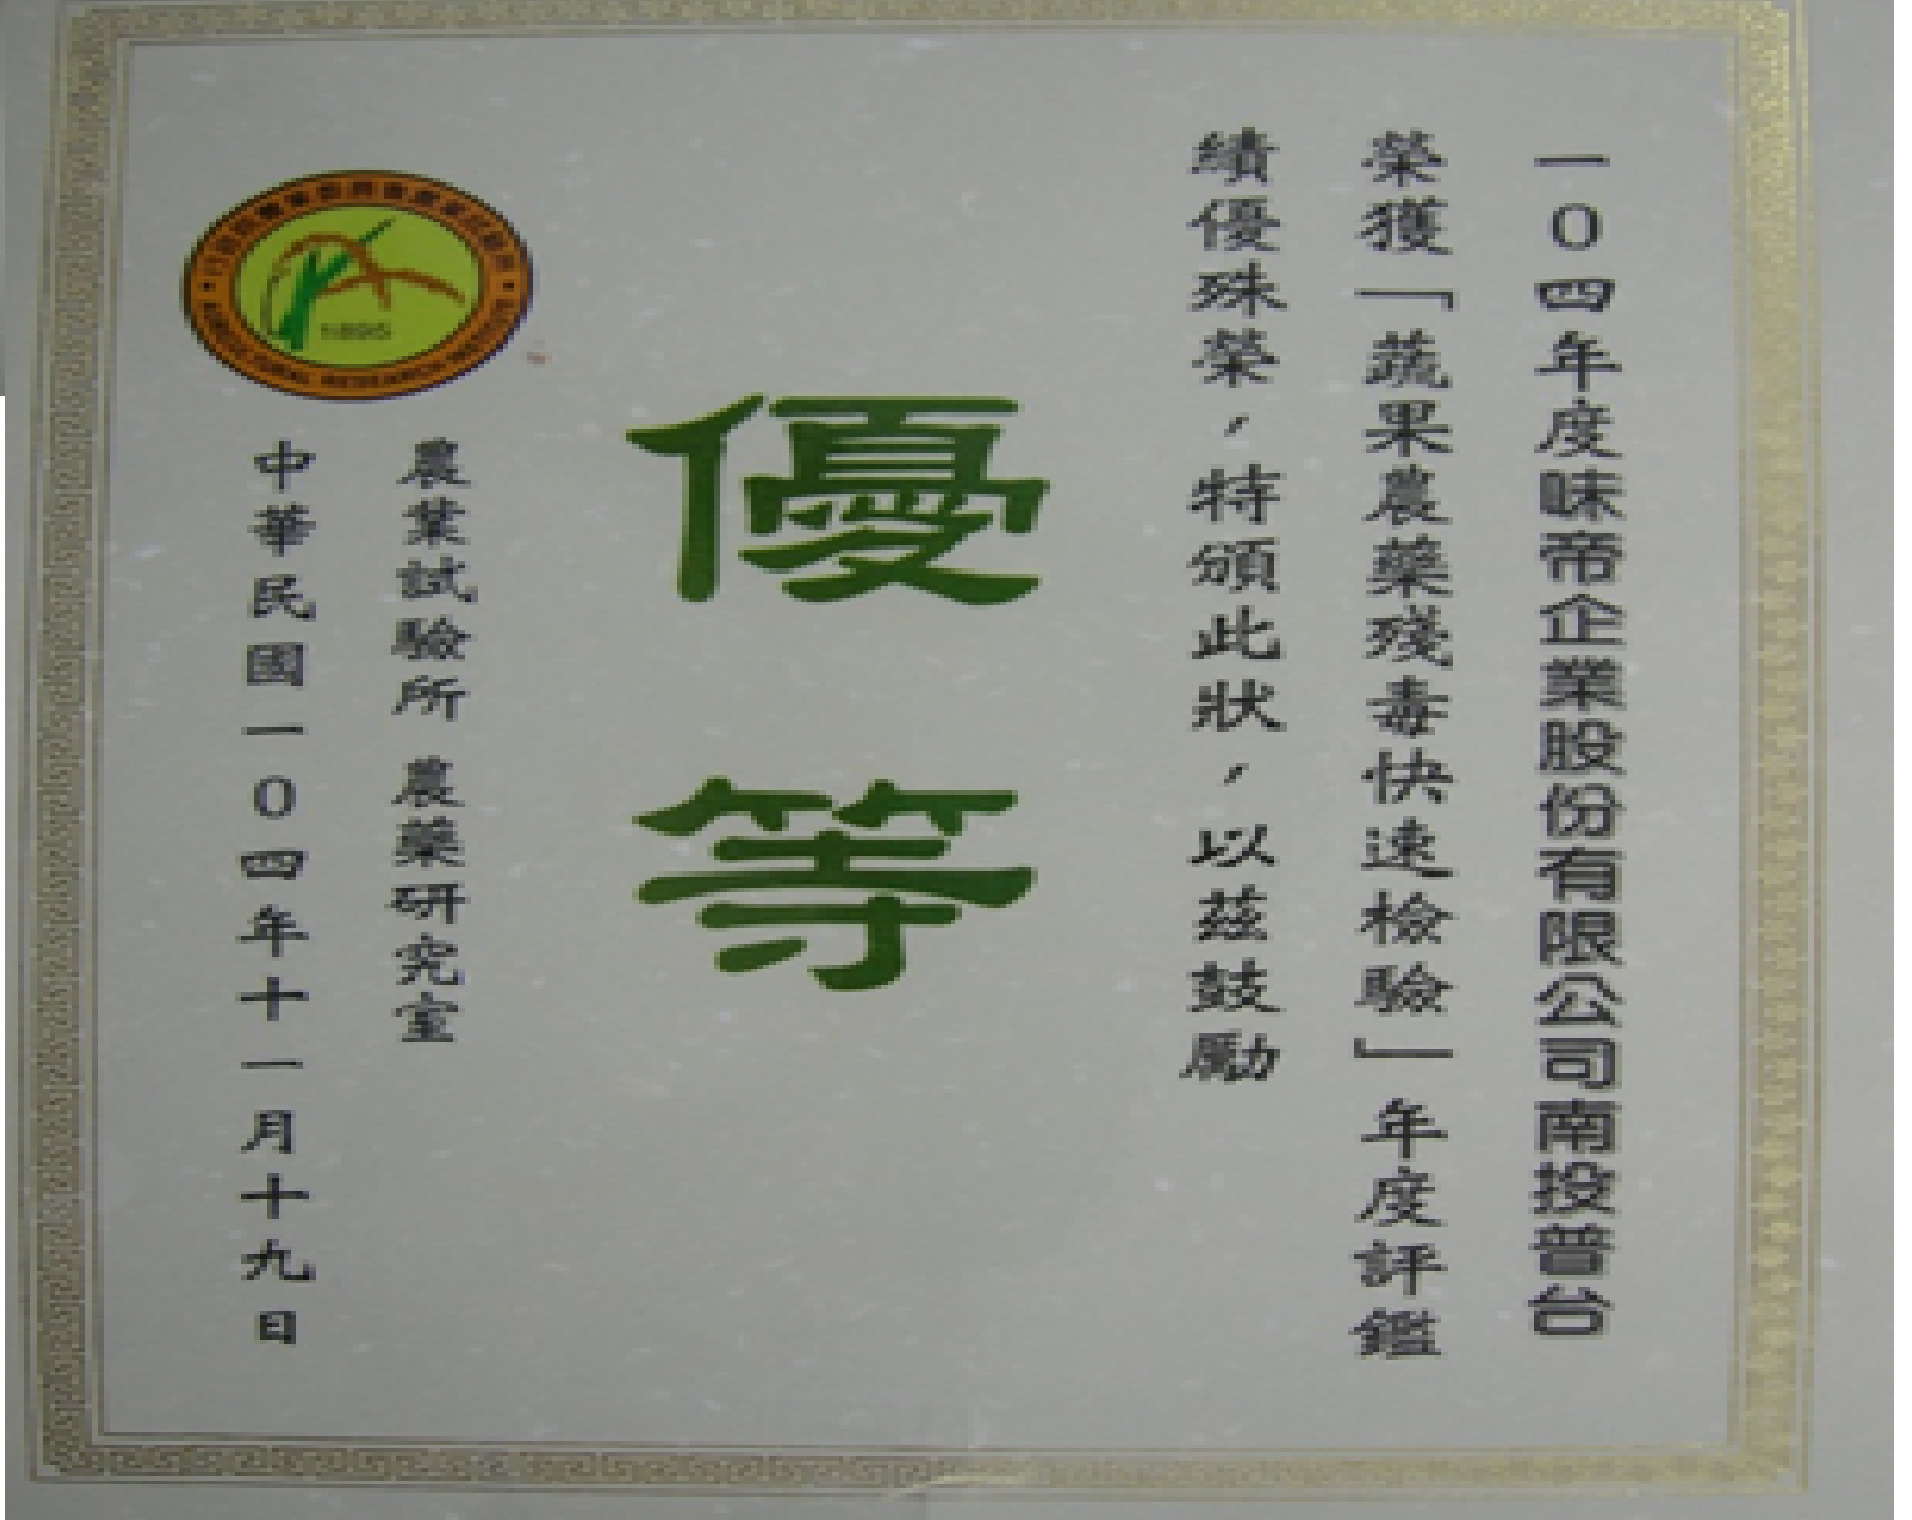 一０四年度味帝企業股份有限公司南投普台
榮獲「蔬果農藥殘毒快速檢驗」年度評鑑
績優殊榮，特頒此狀，以茲鼓勵
優等
農業試驗所 農藥研究室
中華民國一０四年十一月十九日
1895